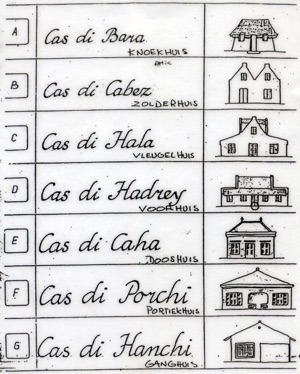 A
Cas di Bara
KNOEKHUIS
Attic
B
Cas di Cabez
ZOLDERHUIS
C
Cas di Hala
VLEUGELHUIS
D
Cas di Hadrey
VOORHUIS
E
Cas di Caha
DOOSHUIS
F
Cas di Porchi
PORTIEKHUIS
G
Cas di Hanchi
GANGHUIS